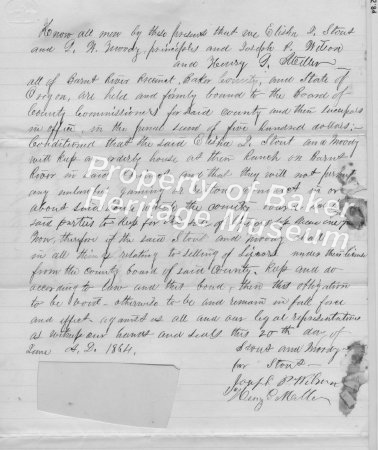 Know all men by these presents that we Elisha S. Stout
and S. W. Moody principles and Joseph P. Wilson
and Henry C. Miller
all of Burnt River Precinct, Baker County, and State of
Oregon, are held and firmly bound to the Board of
County Commissioners for said county and their successors
in office, in the penal sum of five hundred dollars;
Conditioned that the said Elisha S. Stout and Moody
will keep orderly house at their Ranch on Burnt
River in said and that they will not permit
any unlawful gaming or riotous conduct in or
about said house that the county
said parties to keep for the of one year
Now, therefore if the said Stout and Moody shall
in all things relating to selling of liquors under their license
from the county board of said County. Keep and do
according to law and this bond, then this obligation
to be void - otherwise to be and remain in full force
and effect against us all and our legal representatives
as witness our hands and seals this 20th day of
June A. D. 1864.
Stout and Moody
for Stout
Joseph P. Wilson
Henry C Miller
Property of Baker
Heritage Museum